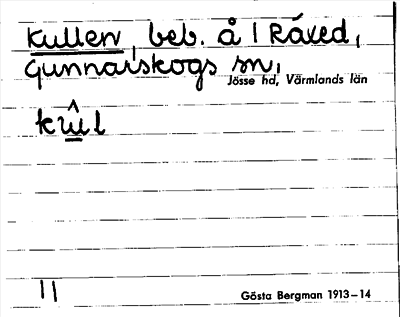 Kullen, beb. å 1 Råxed,
Gunnarskogs sn,
Jösse hd, Värmlands län
kûl
11
Gösta Bergman 1913–14